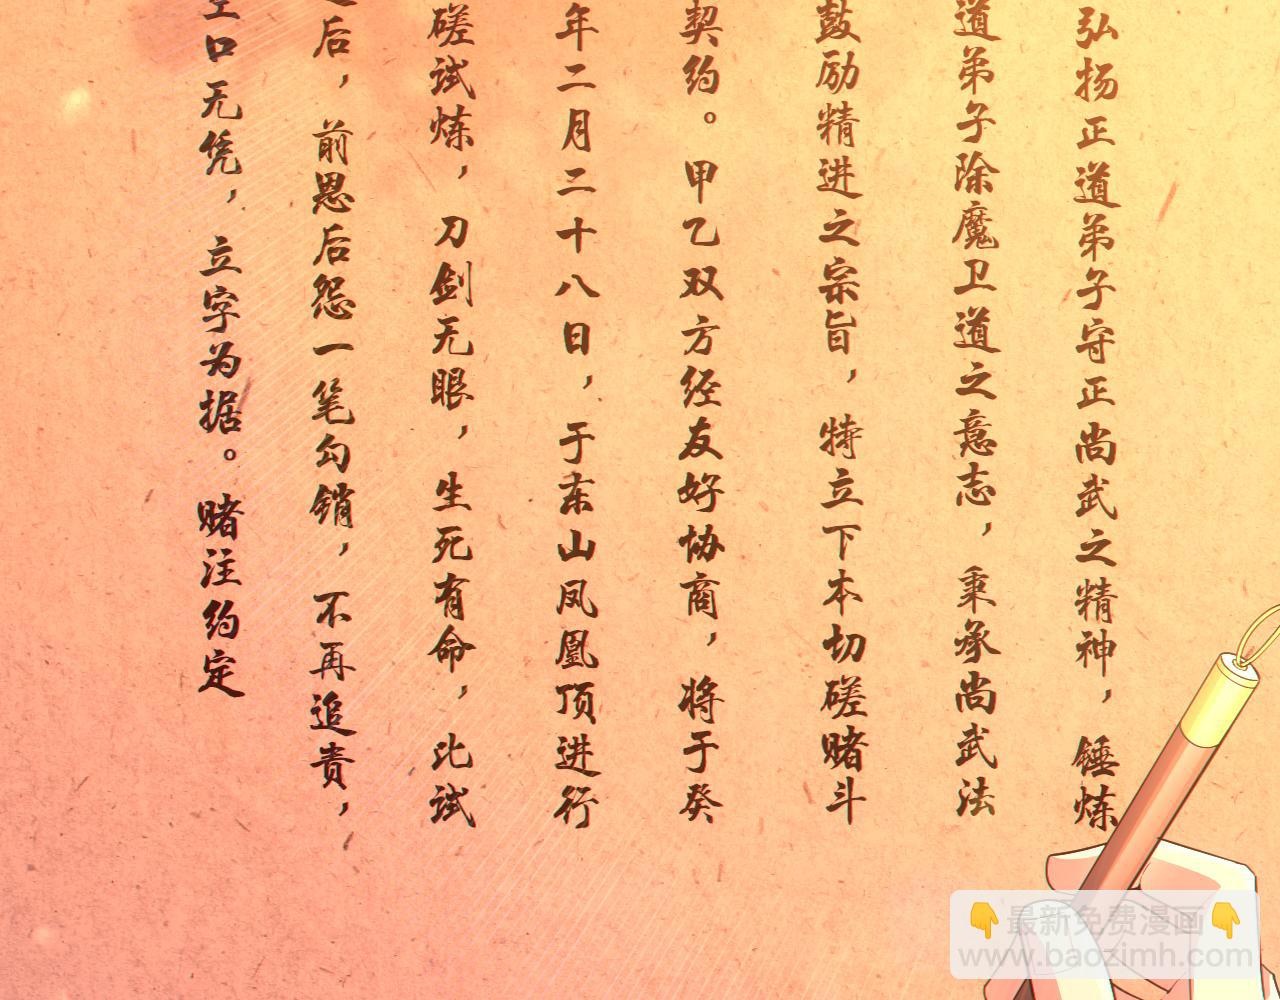 弘扬正道弟子守正尚武之精神，锤炼
道弟子除魔卫道之意志，秉承尚武法
鼓励精进之宗旨，特立下本切磋赌斗
契约。甲乙双方经友好协商，将于癸
年二月二十八日，于东山凤凰顶进行
磋试炼，刀剑无眼，生死有命，比试
后，前恩后怨一笔勾销，不再追责，
空口无凭，立字为据。赌注约定
👇最新免费漫画👇
www.baozimh.com